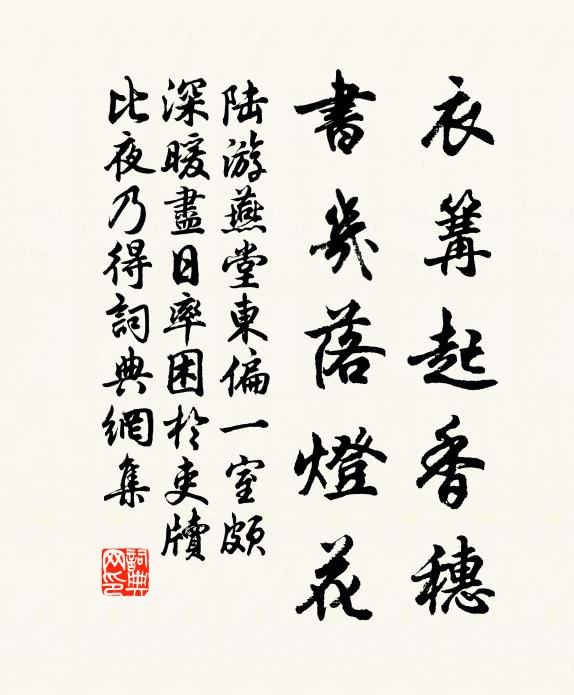 衣篝起香穗
書幾落燈花
陸游燕堂東偏一室頗
深暖盡日率困於吏牘
比夜乃得詞典網集
詞典
网印